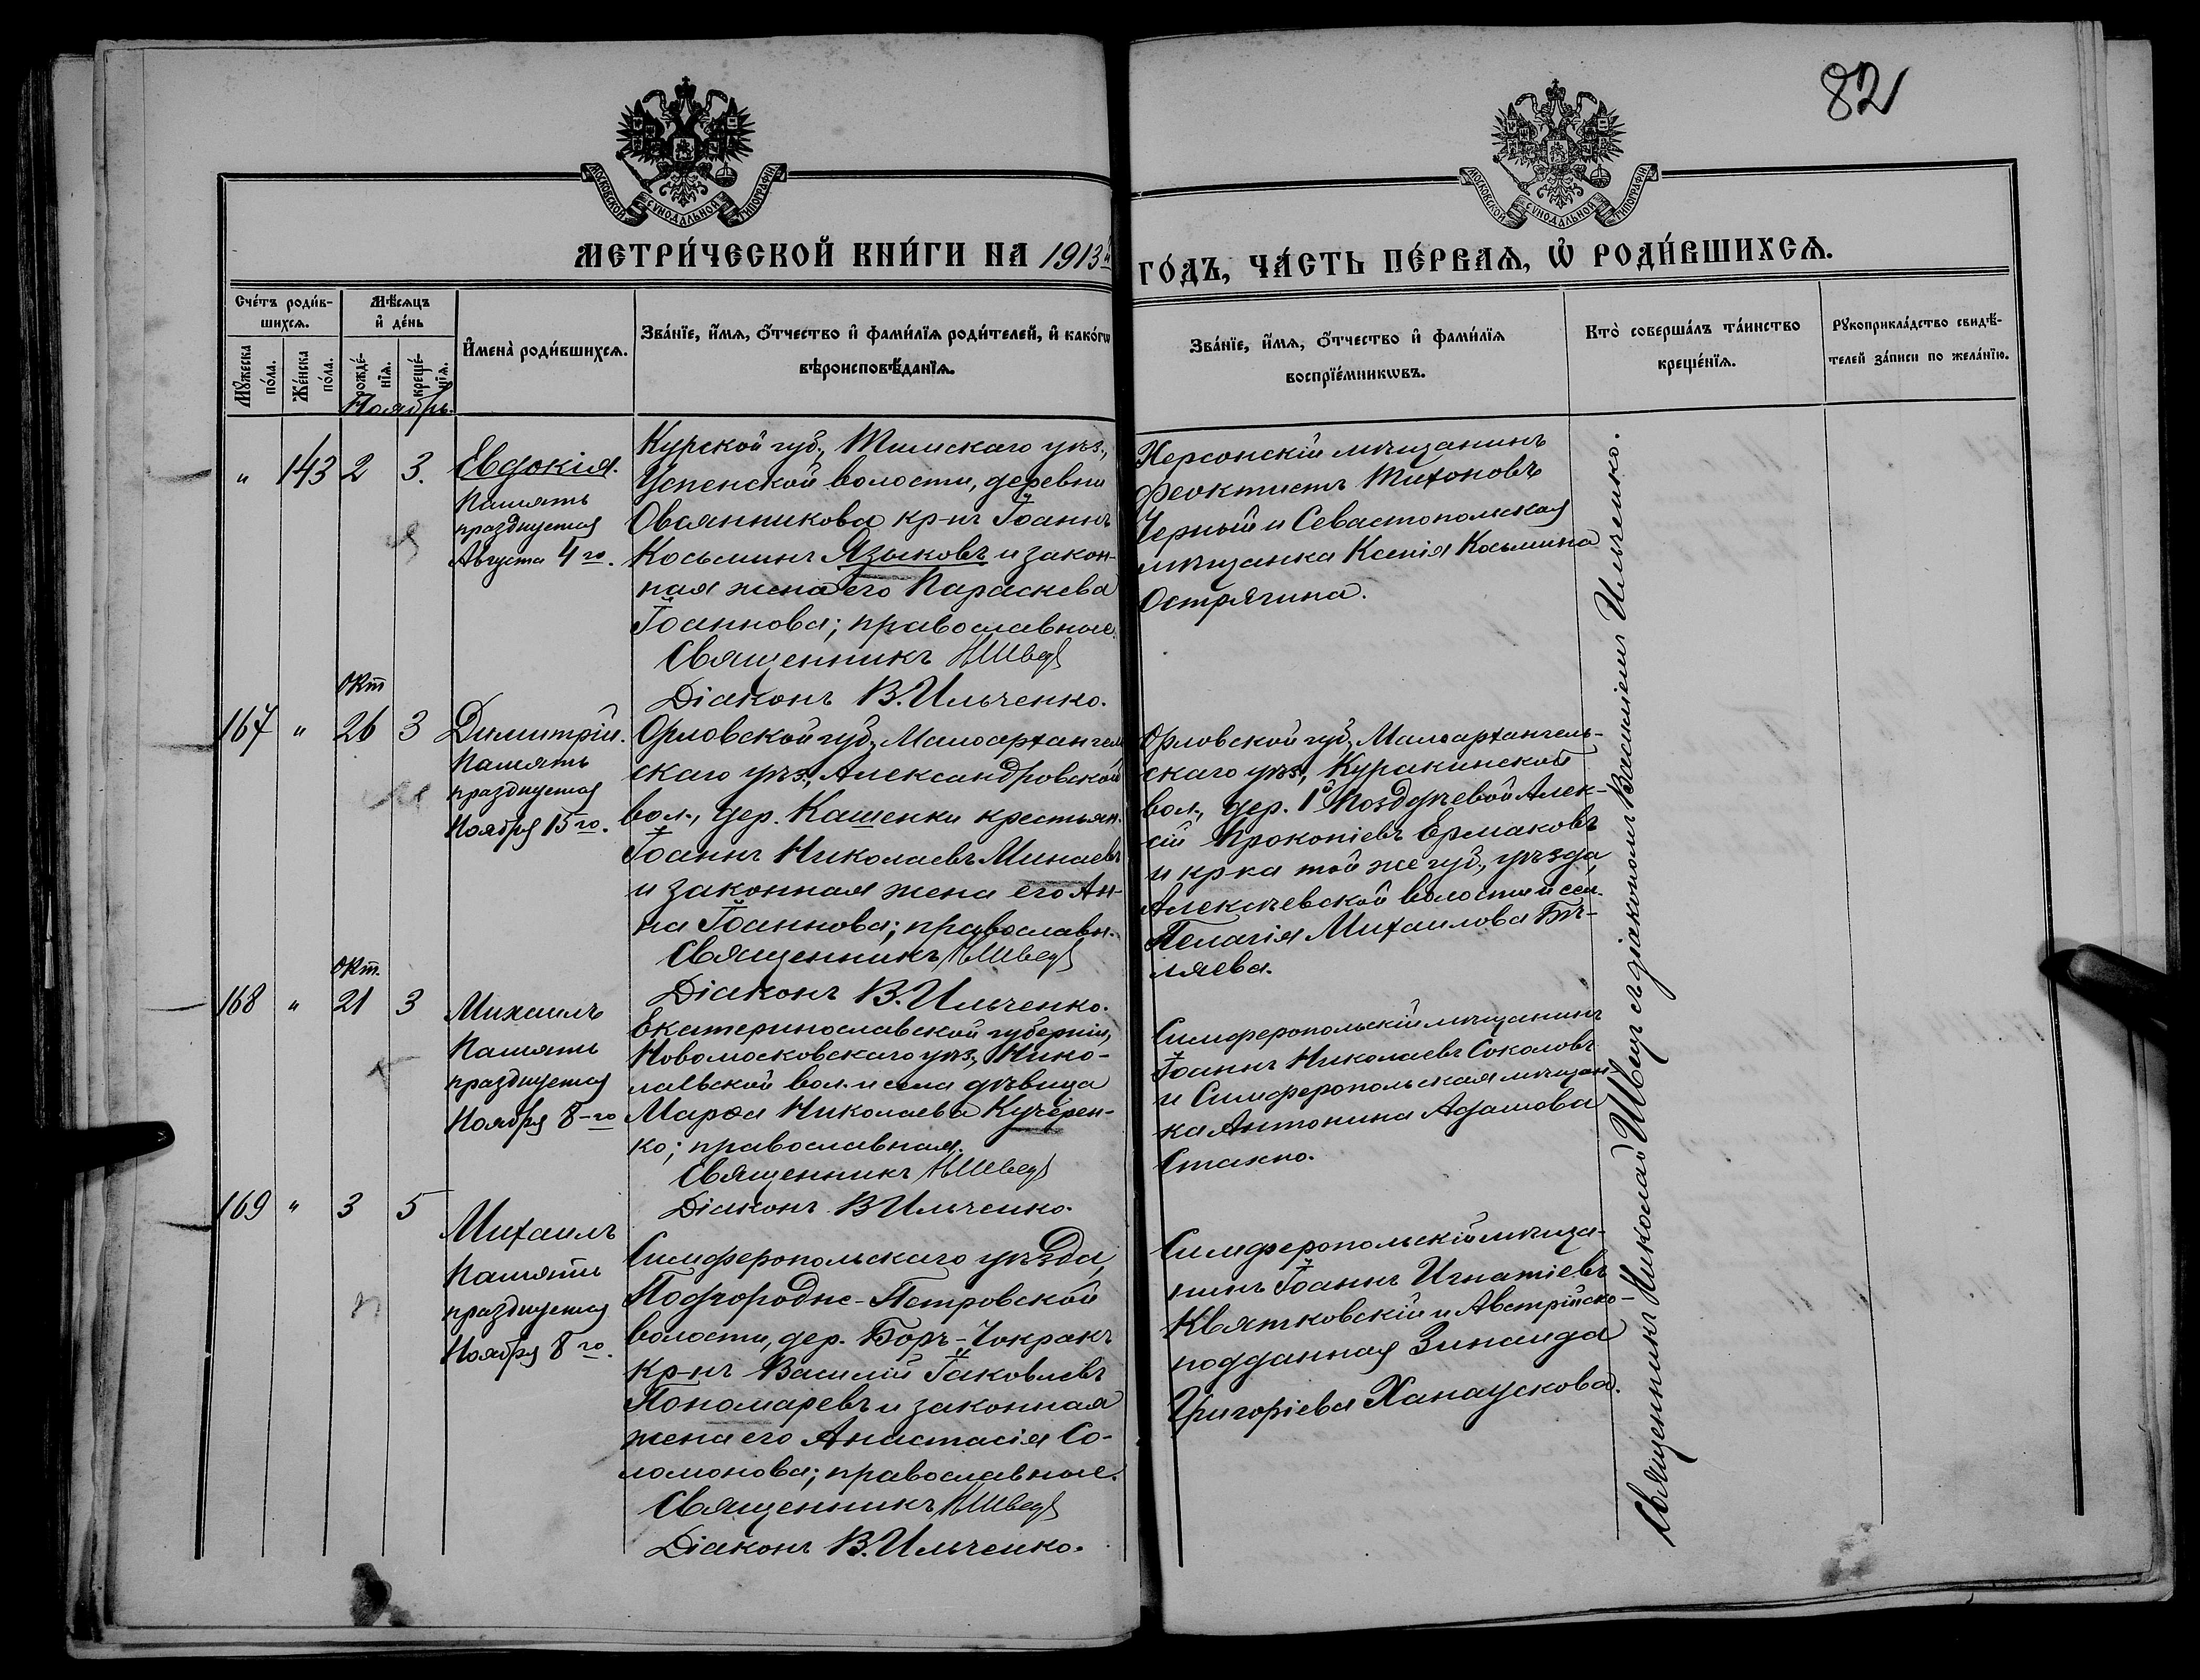 82
МОСКОВСКОЙ СУНОДАЛЬНОЙ ТИПОГРАФІИ
МОСКОВСКОЙ СУНОДАЛЬНОЙ ТИПОГРАФІИ
МЕТРИ́ЧЕСКОЙ КНИ́ГИ НА 1913й
ГО́ДЪ, ЧА́СТЬ ПЕ́РВАѦ, Ѿ РОДИ́ВШИХСѦ.
Сче́тъ роди́в-
шихсѧ.
Мѣ́сѧцъ
и҆ де́нь
Мꙋ́жеска
по́ла.
Же́нска
по́ла.
рожде́-
нїѧ.
креще́-
нїѧ.
И҆мена̀ роди́вшихсѧ.
Зва́нїе, и҆́мѧ, ѻ҆́тчество и҆ фами́лїѧ роди́телей, и҆ како́гѡ
вѣроисповѣ́данїѧ.
Зва́нїе, и҆́мѧ, ѻ҆́тчество и҆ фами́лїѧ
воспрїе́мникѡвъ.
Кто̀ соверша́лъ та́инство
креще́нїѧ.
Рꙋкоприкла́дство свидѣ́-
телей за́писи по жела́нїю.
Ноябрь.
" 143 2 3.
Евдокія.
Память
празднуется
Августа 4го.
Курской губ., Тимскаго уѣз.,
Успенской волости, деревни
Овсянникова кр-нъ Іоаннъ
Косьминъ Языковъ и закон-
ная жена его Параскева
Іоаннова; православные.
Священникъ НШвец
Діаконъ В. Ильченко.
Херсонскій мѣщанинъ
Феоктистъ Тихоновъ
Черный и Севастопольская
мѣщанка Ксенія Косьмина
Острягина.
окт
167 " 26 3
Димитрій.
Память
празднуется
Ноября 15го.
Орловской губ., Малоархангель
скаго уѣз., Александровской
вол., дер. Кашенки крестьян.
Іоаннъ Николаевъ Минаевъ
и законная жена его Ан-
на Іоаннова; православн.
Священникъ НШвец
Діаконъ В. Ильченко.
Орловской губ., Малоархангель-
скаго уѣз., Куракинской
вол., дер. 1й Поздѣевой Алек-
сій Прокопіевъ Ермаковъ
и кр-ка той же губ., уѣзда,
Алексѣевской волости и сел.
Пелагія Михаилова Бѣ-
ляева.
окт.
168 " 21 3
Михаилъ
Память
празднуется
Ноября 8-го
Екатеринославской губерніи,
Новомосковскаго уѣз., Нико-
лаевской вол. и села дѣвица
Марѳа Николаева Кучерен-
ко; православная.
Священникъ НШвец
Діаконъ В Ильченко.
Симферопольскій мѣщанинъ
Іоаннъ Николаевъ Соколовъ
и Симферопольская мѣщан-
ка Антонина Адамова
Стахно.
169 " 3 5
Михаилъ
Память
празднуется
Ноября 8го.
Симферопольскаго уѣзда,
Подгородне-Петровской
волости, дер. Боръ-Чокракъ
кр-нъ Василій Іаковлевъ
Пономаревъ и законная
жена его Анастасія Со-
ломонова; православные.
Священникъ НШвец
Діаконъ В. Ильченко.
Симферопольскій мѣща-
нинъ Іоаннъ Игнатіевъ
Квятковскій и Австрійско-
подданная Зинаида
Григоріева Ханаускова.
Священникъ Николай Швец съ діакономъ Василіемъ Ильченко.